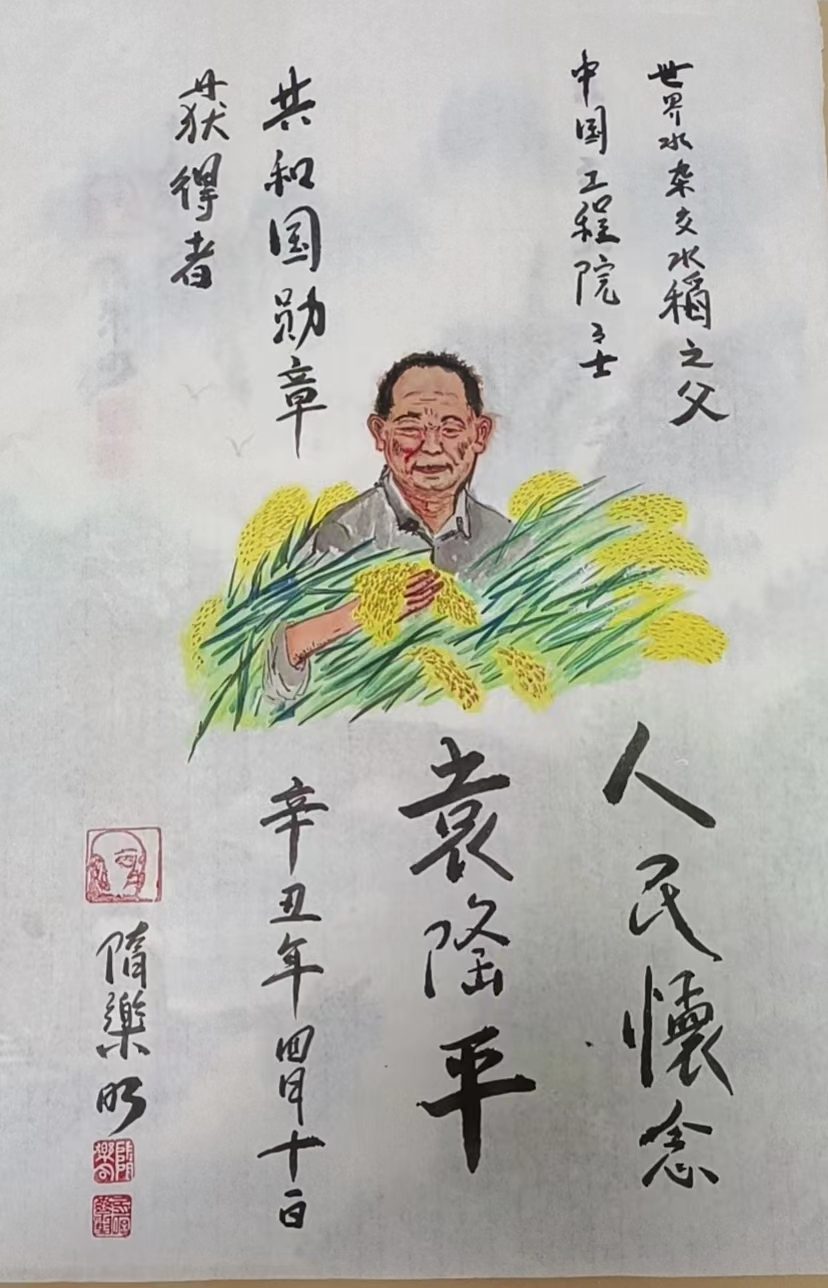 世界水杂交水稻之父
中国工程院士
共和国勋章
获得者
人民懷念
袁隆平
辛丑年四月十日
隋樂明